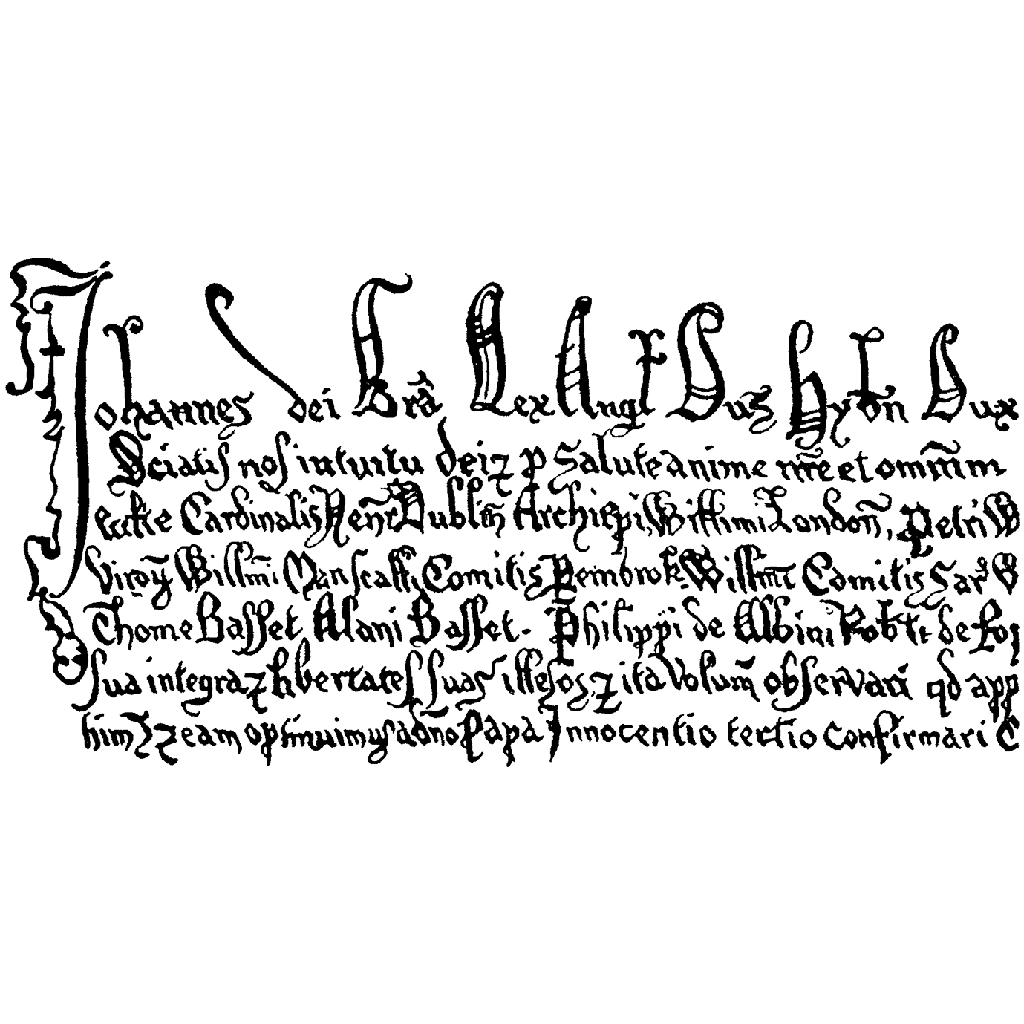 Johannes dei Grã Rex Angl Dus Hybn Dux
Sciatis nos intuitu dei ⁊ p Salute anime nr̃e et omniũm
eccle Cardinalis Henr̃ Dublin̄ Archiepi, Willimi London̄, Petri W
Viroꝝ Willmi Marscalli, Comitis Pembrok Willmi Comitis Sar̄ W
Thome Basset Alani Basset. Philippi de Albini Robti de Rop
sua integra ⁊ libertates suas illesos, ⁊ ita Volum̄ observari qd app
him ⁊ eam optinuimus a dño Papa Innocentio tertio confirmari C